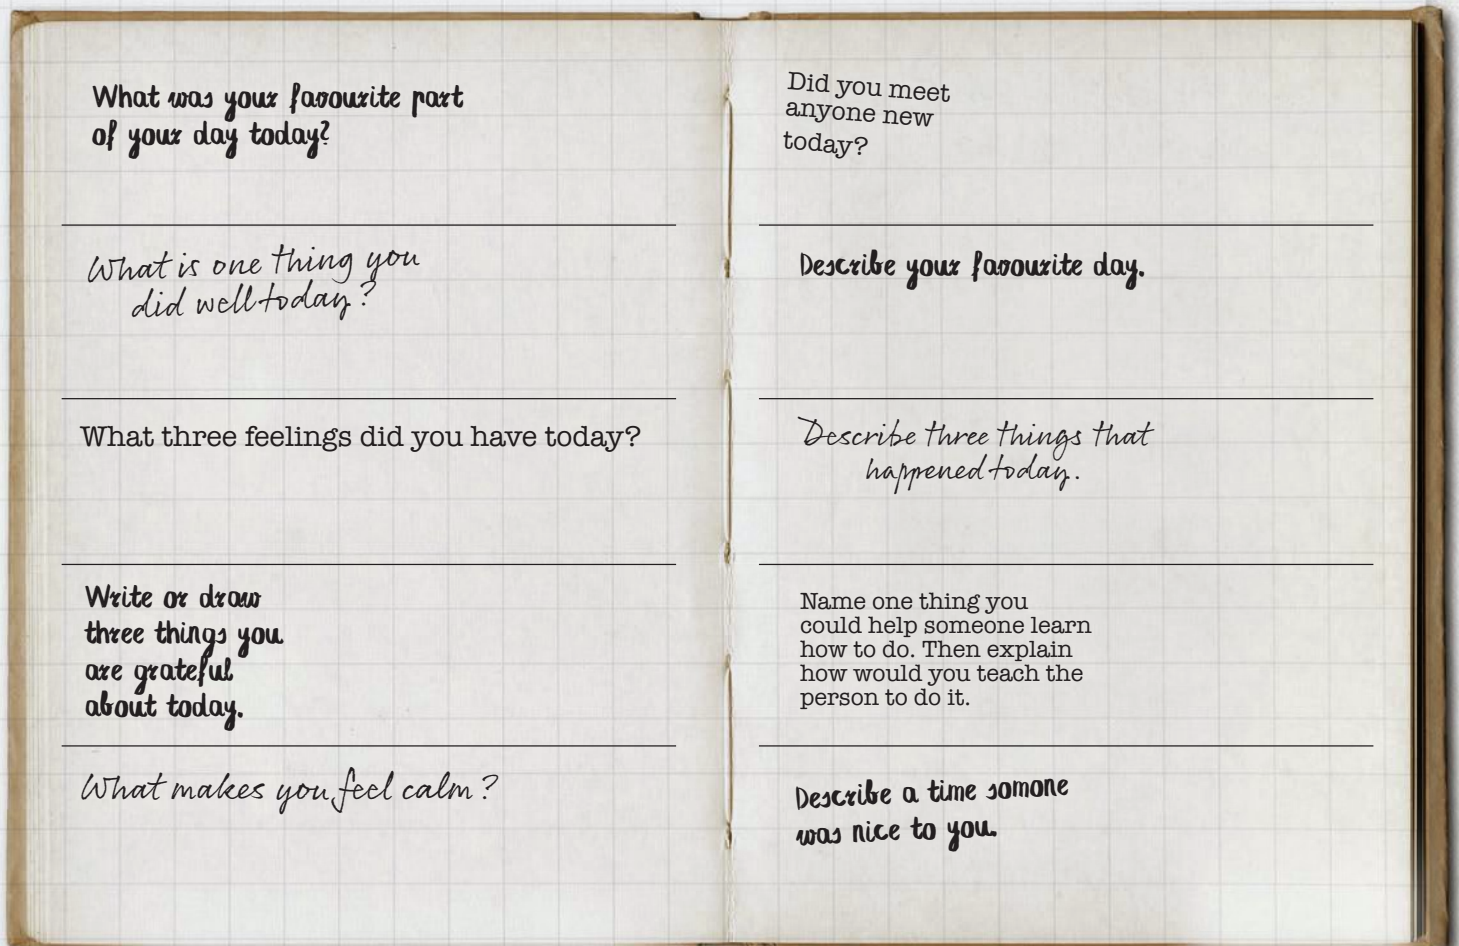 What was your favourite part
of your day today?
What is one thing you
did well today?
What three feelings did you have today?
Write or draw
three things you
are grateful
about today.
What makes you feel calm?
Did you meet
anyone new
today?
Describe your favourite day.
Describe three things that
happened today.
Name one thing you
could help someone learn
how to do. Then explain
how would you teach the
person to do it.
Describe a time somone
was nice to you.